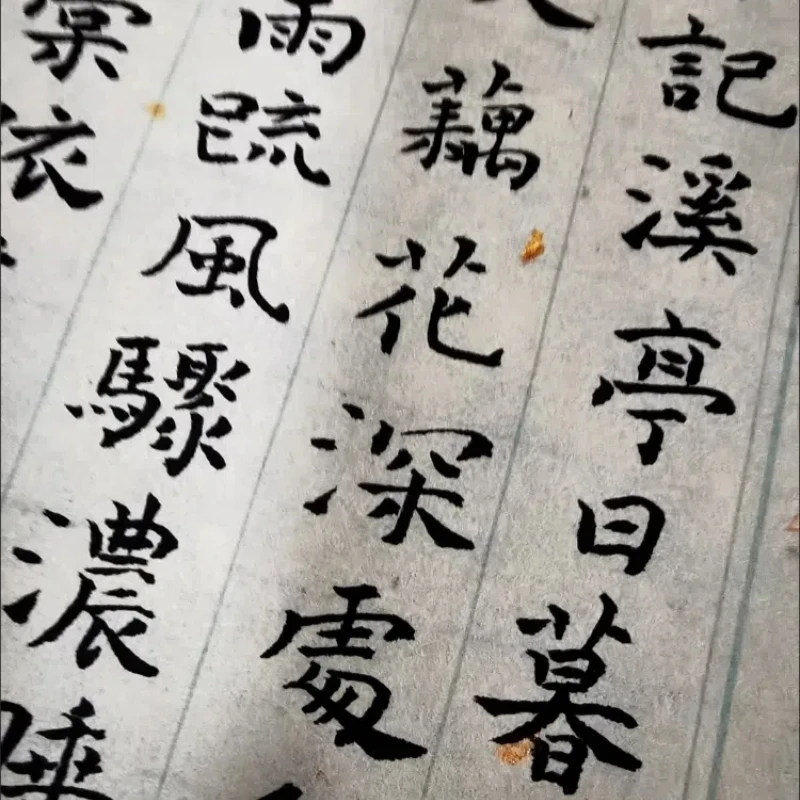 記溪亭日暮
藕花深處
雨疏風驟濃睡
棠依